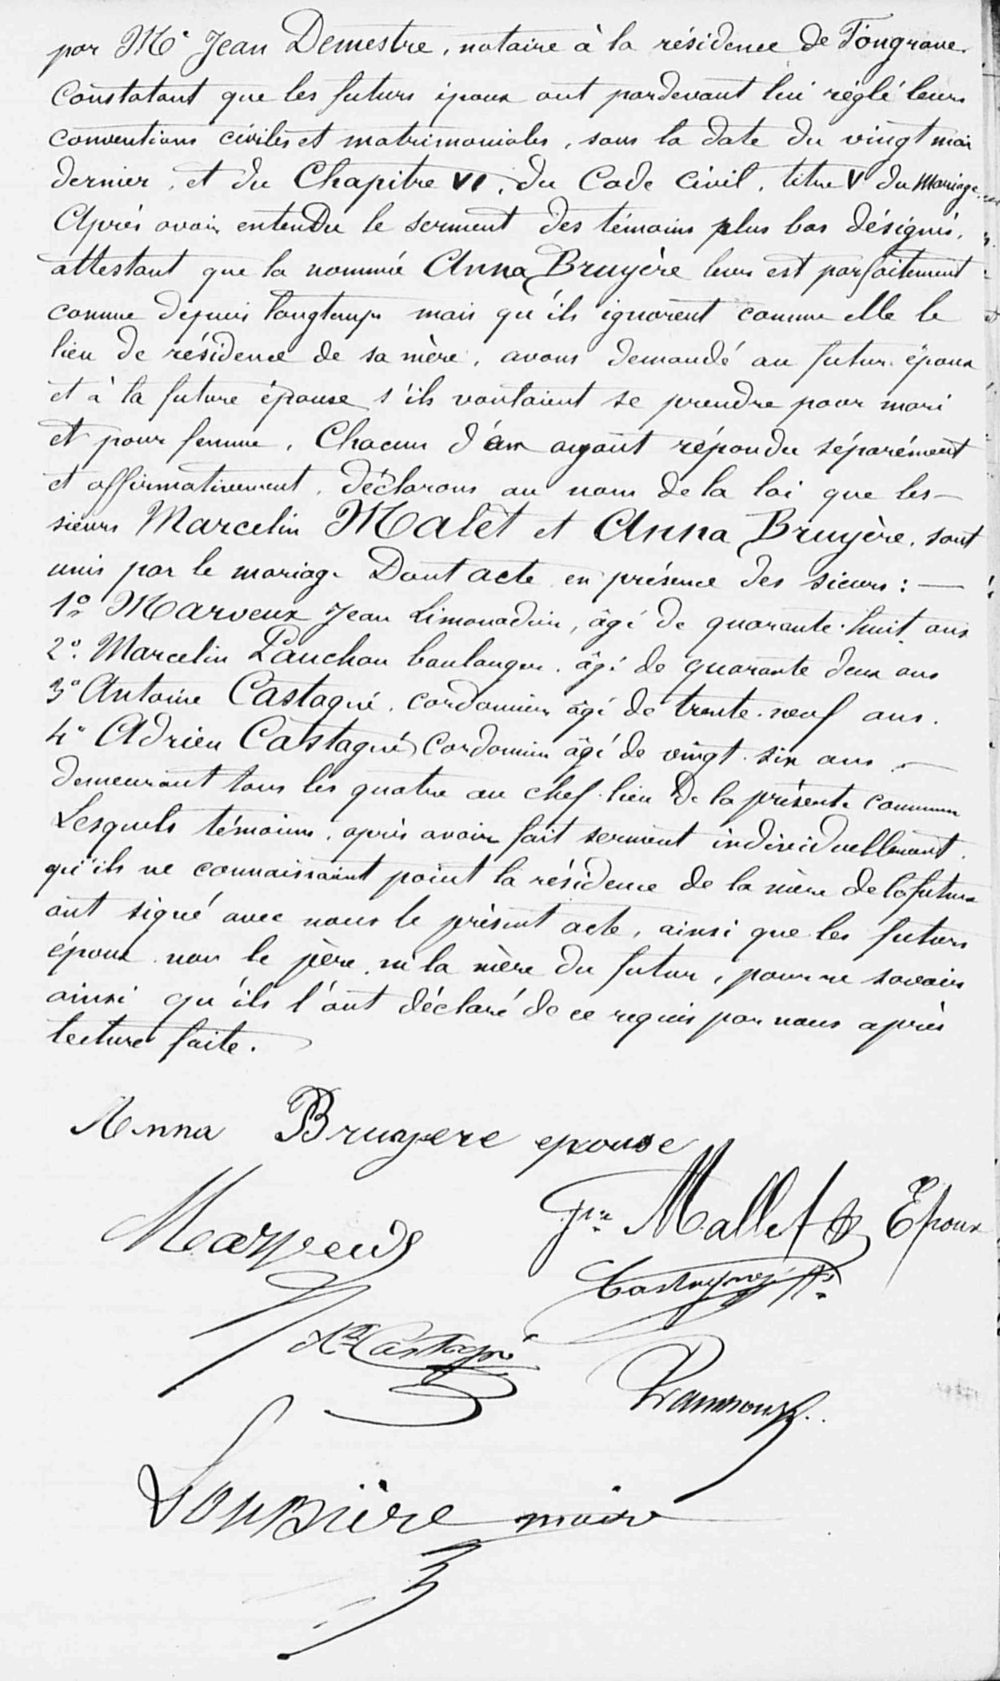 par Me Jean Demestre, notaire à la résidence de Fongrave.
Constatant que les futurs époux ont pardevant lui réglé leurs
conventions civiles et matrimoniales, sous la date du vingt mai
dernier, et du Chapitre VI, du Code Civil, titre V du Mariage.
Après avoir entendu le serment des témoins plus bas désignés,
attestant que la nommée Anna Bruyère leur est parfaitement
connue depuis longtemps mais qu'ils ignorent comme elle le
lieu de résidence de sa mère, avons demandé au futur époux
et à la future épouse s'ils voulaient se prendre pour mari
et pour femme, Chacun d'eux ayant répondu séparément
et affirmativement, déclarons au nom de la loi que les —
sieurs Marcelin Malet et Anna Bruyère, sont
unis par le mariage Dont acte en présence des sieurs : —
1o Marveux Jean Limonadier, âgé de quarante-huit ans
2o Marcelin Pauchou boulanger, âgé de quarante deux ans
3o Antoine Castagné, cordonnier âgé de trente-neuf ans.
4o Adrien Castagné Cordonnier âgé de vingt-six ans —
demeurant tous les quatre au chef-lieu de la présente commune
Lesquels témoins, après avoir fait serment individuellement
qu'ils ne connaissaient point la résidence de la mère de la future
ont signé avec nous le présent acte, ainsi que les futurs
époux non le père, ni la mère du futur, pour ne savoir
ainsi qu'ils l'ont déclaré de ce requis par nous après
lecture faite.
Anna Bruyere epouse
Jn Mallet Epoux
Marveux
Castagné
Castagné
Soupière maire